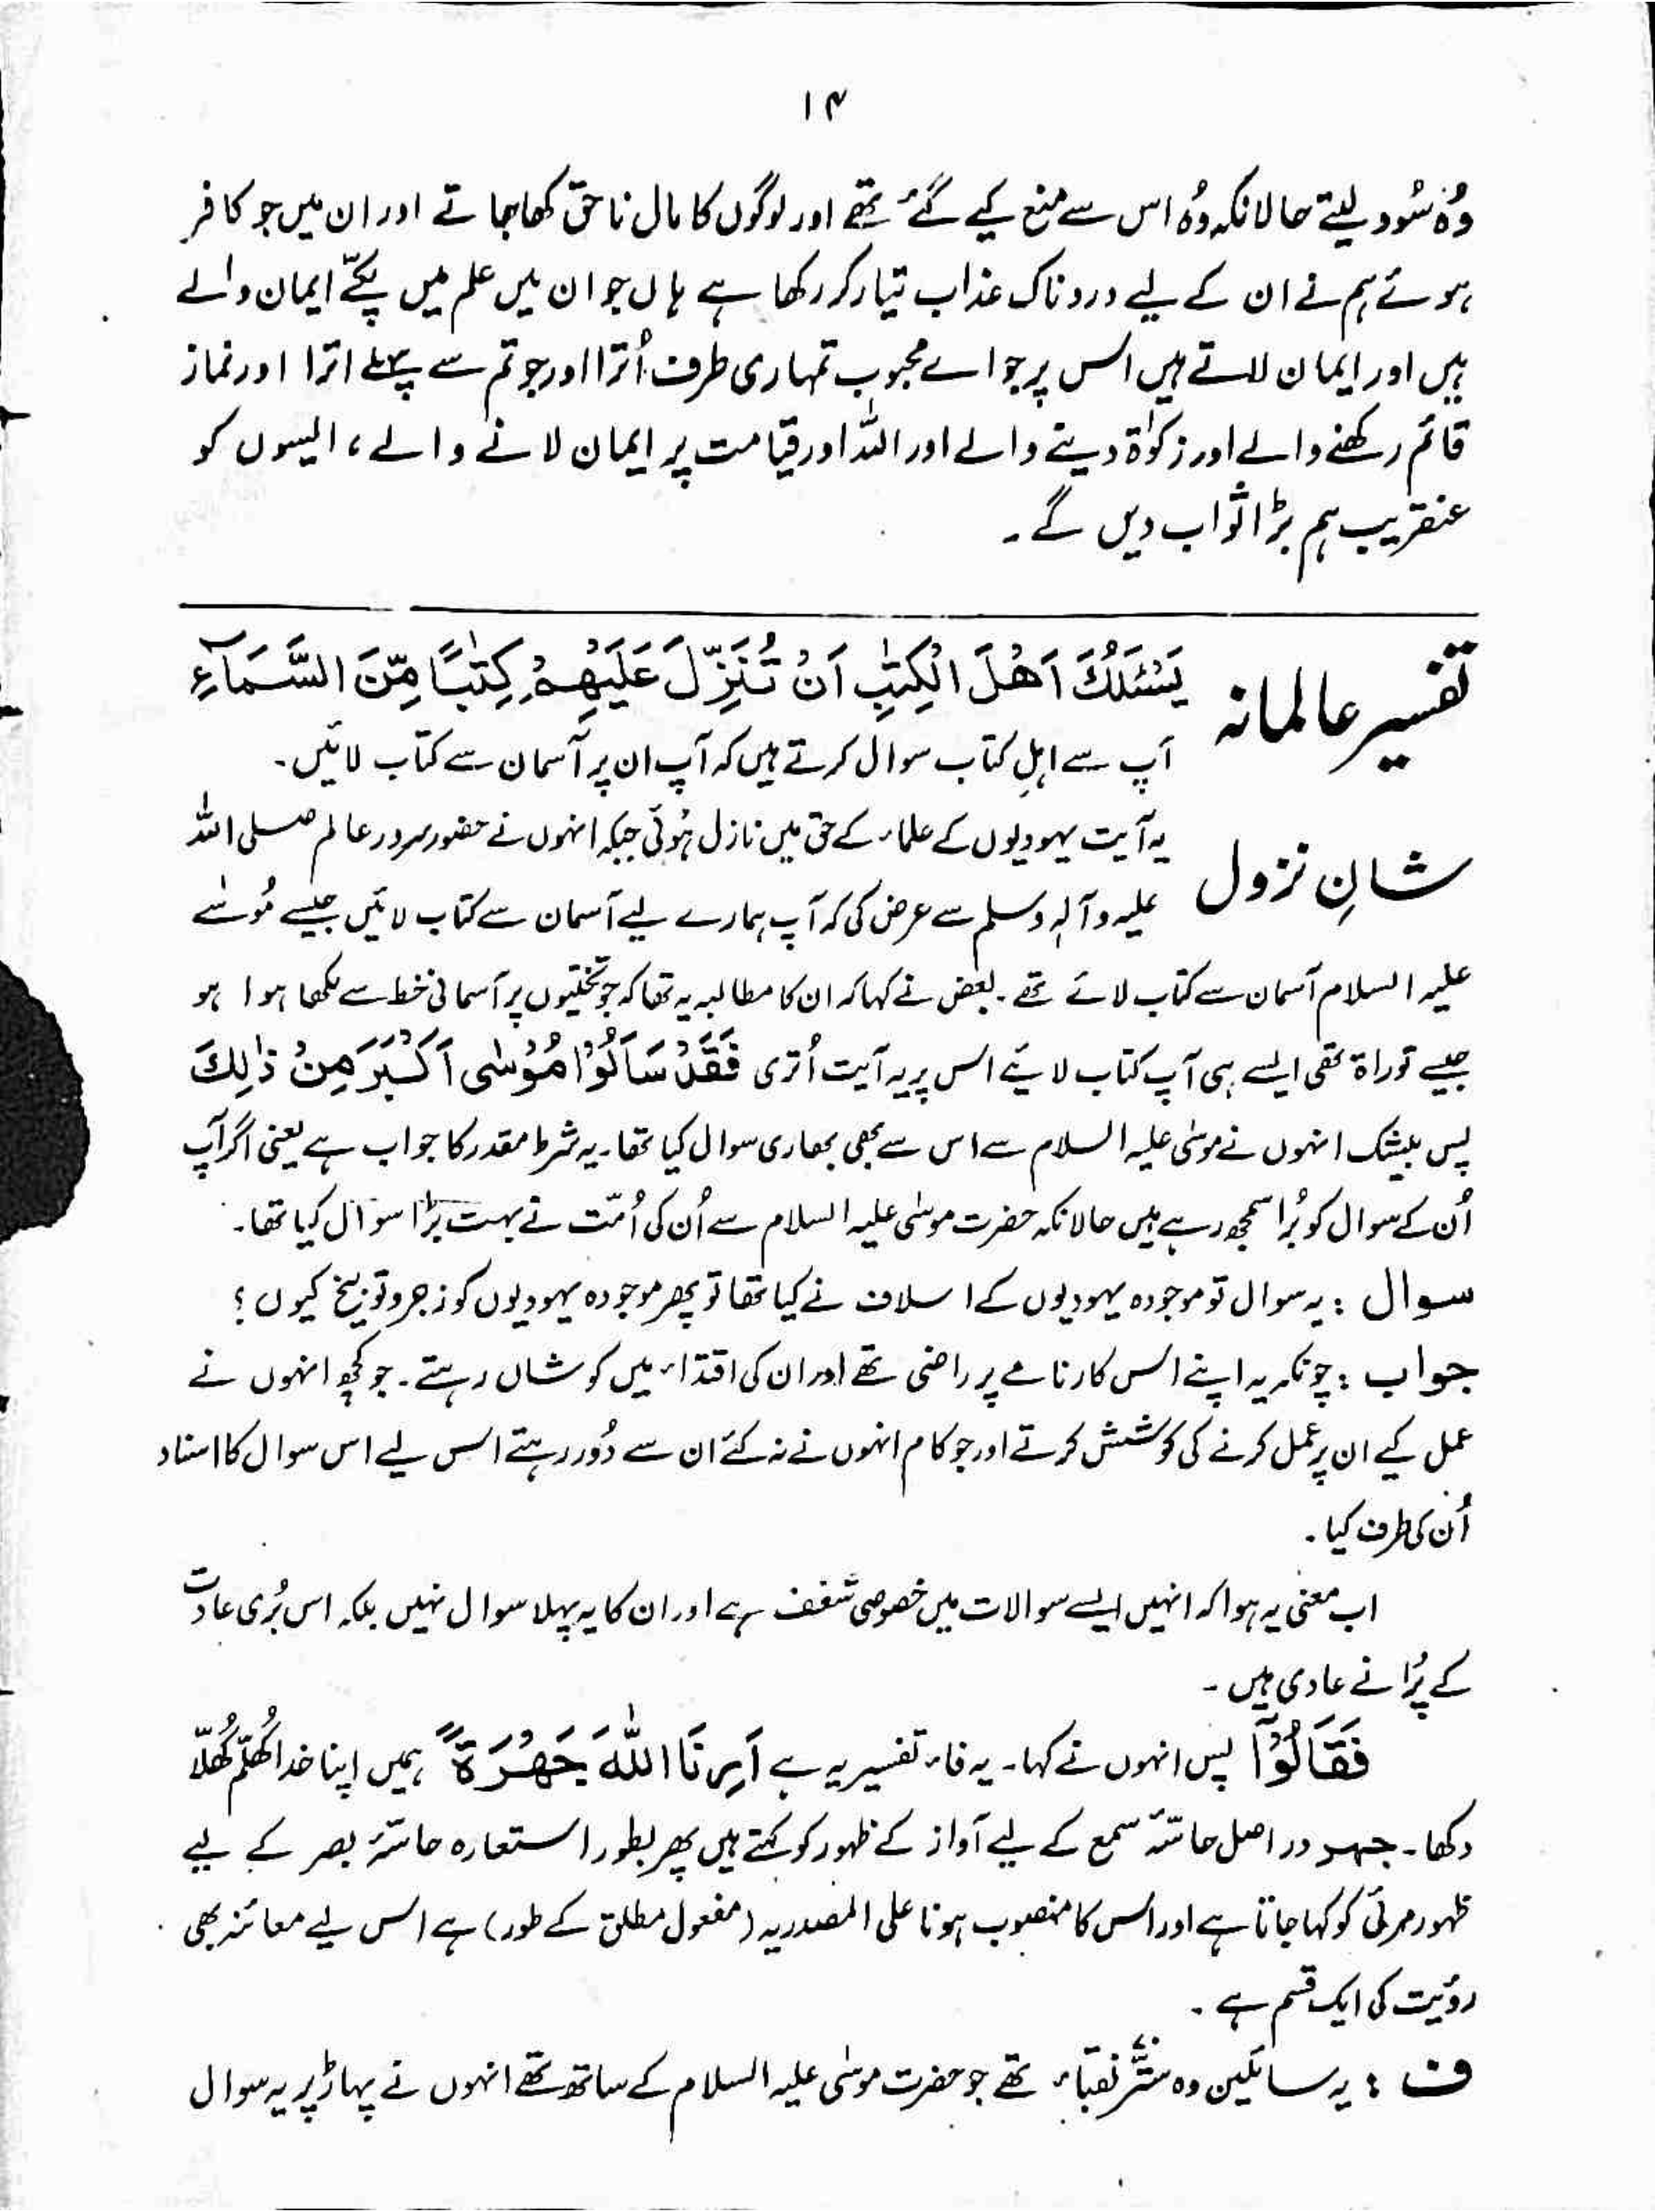 ۱۴
وُہ سُود لیتے حالانکہ وُہ اس سے منع کیے گئے تھے اور لوگوں کا مال ناحق کھا جاتے اور ان میں جو کافر
ہوئے ہم نے ان کے لیے دردناک عذاب تیار کر رکھا ہے ہاں جو ان میں علم میں پکّے ایمان والے
ہیں اور ایمان لاتے ہیں اس پر جو اے محبوب تمہاری طرف اُترا اور جو تم سے پہلے اترا اور نماز
قائم رکھنے والے اور زکوٰۃ دینے والے اور اللہ اور قیامت پر ایمان لانے والے، ایسوں کو
عنقریب ہم بڑا ثواب دیں گے۔
تفسیر عالمانہ
يَسْئَلُكَ اَهْلُ الْكِتٰبِ اَنْ تُنَزِّلَ عَلَيْهِمْ كِتٰبًا مِّنَ السَّمَآءِ
آپ سے اہلِ کتاب سوال کرتے ہیں کہ آپ ان پر آسمان سے کتاب لائیں۔
شانِ نزول
یہ آیت یہودیوں کے علماء کے حق میں نازل ہُوئی جبکہ انہوں نے حضور سرور عالم صلی اللہ
علیہ وآلہٖ وسلم سے عرض کی کہ آپ ہمارے لیے آسمان سے کتاب لائیں جیسے مُوسٰے
علیہ السلام آسمان سے کتاب لائے تھے۔ بعض نے کہا کہ ان کا مطالبہ یہ تھا کہ جو تختیوں پر آسمانی خط سے لکھا ہوا ہو
جیسے توراۃ تھی ایسے ہی آپ کتاب لایئے اس پر یہ آیت اُتری فَقَدْ سَاَلُوْا مُوْسٰی اَكْبَرَ مِنْ ذٰلِكَ
پس بیشک انہوں نے موسٰی علیہ السلام سے اس سے بھی بھاری سوال کیا تھا۔ یہ شرط مقدر کا جواب ہے یعنی اگر آپ
اُن کے سوال کو بُرا سمجھ رہے ہیں حالانکہ حضرت موسٰی علیہ السلام سے اُن کی اُمّت نے بہت بڑا سوال کیا تھا۔
سوال : یہ سوال تو موجودہ یہودیوں کے اسلاف نے کیا تھا تو پھر موجودہ یہودیوں کو زجر و توبیخ کیوں ؟
جواب : چونکہ یہ اپنے اس کارنامے پر راضی تھے اور ان کی اقتداء میں کوشاں رہتے۔ جو کچھ انہوں نے
عمل کیے ان پر عمل کرنے کی کوشش کرتے اور جو کام انہوں نے نہ کئے ان سے دُور رہتے اس لیے اس سوال کا اسناد
اُن کی طرف کیا۔
اب معنی یہ ہوا کہ انہیں ایسے سوالات میں خصوصی شغف ہے اور ان کا یہ پہلا سوال نہیں بلکہ اس بُری عادت
کے پُرانے عادی ہیں۔
فَقَالُوْٓا پس انہوں نے کہا۔ یہ فاء تفسیریہ ہے اَرِنَا اللّٰهَ جَهْرَةً ہمیں اپنا خدا کُھلّم کُھلّا
دکھا۔ جہر در اصل حاسّۂ سمع کے لیے آواز کے ظہور کو کہتے ہیں پھر بطور استعارہ حاسّۂ بصر کے لیے
ظہور مرئی کو کہا جاتا ہے اور اس کا منصوب ہونا علی المصدریہ (مفعول مطلق کے طور) ہے اس لیے معائنہ بھی
رؤیت کی ایک قسم ہے۔
ف : یہ سائلین وہ ستّر نقباء تھے جو حضرت موسٰی علیہ السلام کے ساتھ تھے انہوں نے پہاڑ پر یہ سوال